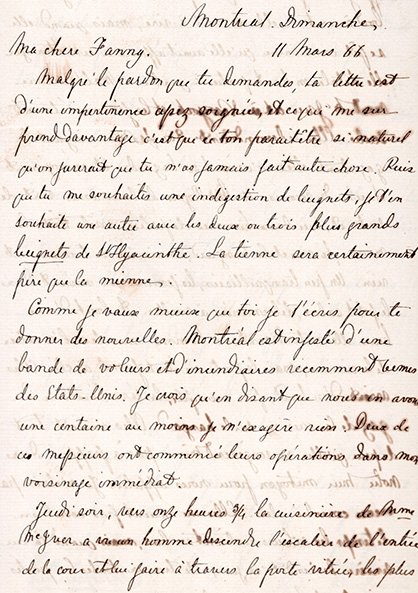 Montréal. Dimanche,
Ma chere Fanny. 11 Mars 66
Malgré le pardon que tu demandes, ta lettre est
d'une impertinence assez soignée, et ce qui me sur
prend davantage c'est que ce ton paraît être si naturel
qu'on jurerait que tu n'as jamais fait autre chose. Puis
que tu me souhaites une indigestion de beignets, je t'en
souhaite une autre avec les deux ou trois plus grands
beignets de St Hyacinthe. La tienne sera certainement
pire que la mienne.
Comme je vaux mieux que toi je t'écris pour te
donner des nouvelles. Montréal est infesté d'une
bande de voleurs et d'incendiaires recemment venus
des Etats-Unis. Je crois qu'en disant que nous en avons
une centaine au moins je n'exagère rien. Deux de
ces messieurs ont commencé leurs opérations dans mon
voisinage immédiat.
Jeudi soir, vers onze heures 3/4 la cuisinière de Mme
a vu un homme descendre l'escalier de l'entrée
de la cour et lui faire à travers la porte vitrée, les plus